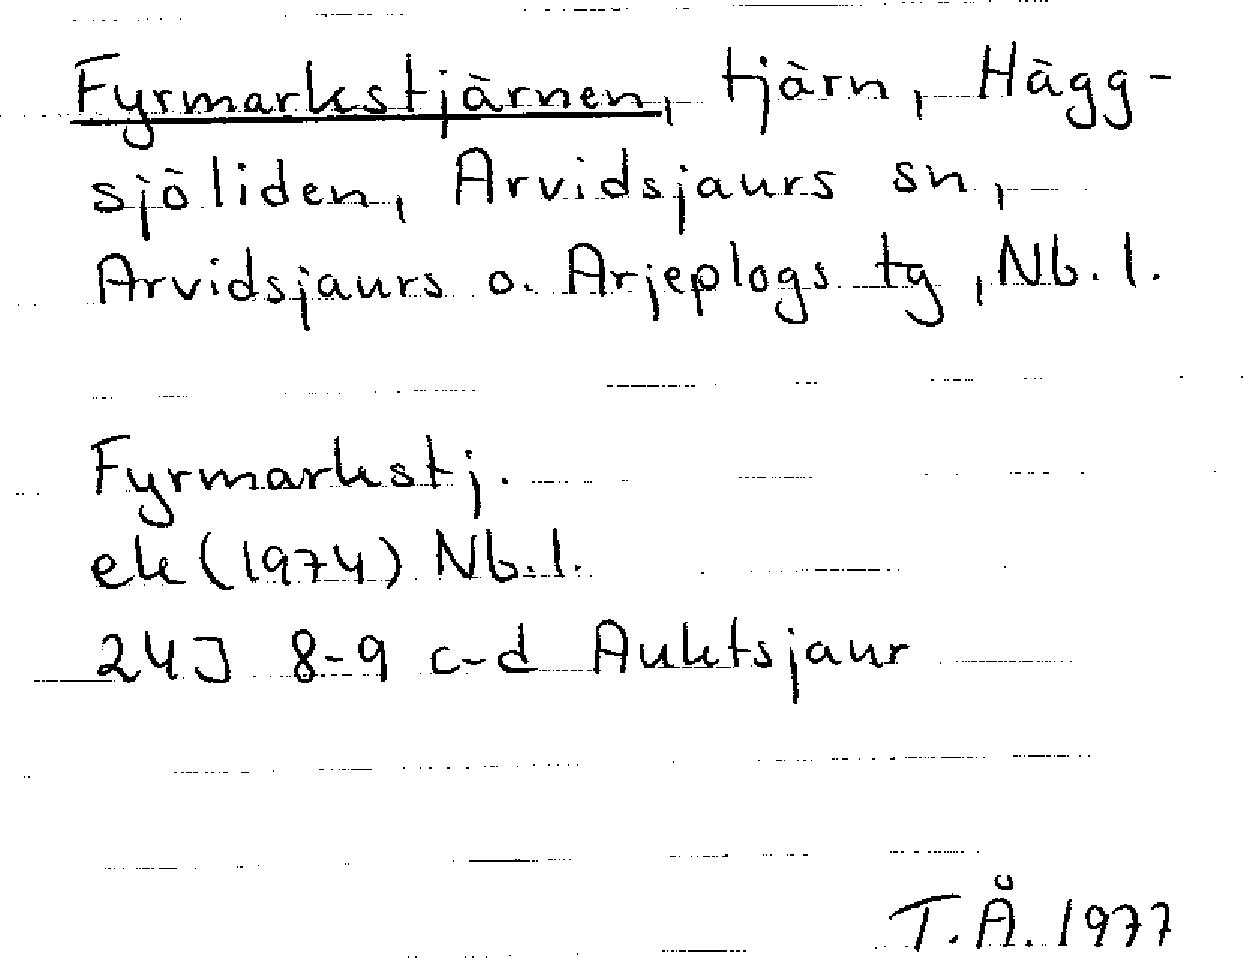 Fyrmarkstjärnen, tjärn, Hägg-
sjöliden, Arvidsjaurs sn,
Arvidsjaurs o. Arjeplogs tg, Nb. l.
Fyrmarkstj.
ek (1974) Nb. l.
24J 8-9 c-d Auktsjaur
T.Å. 1977